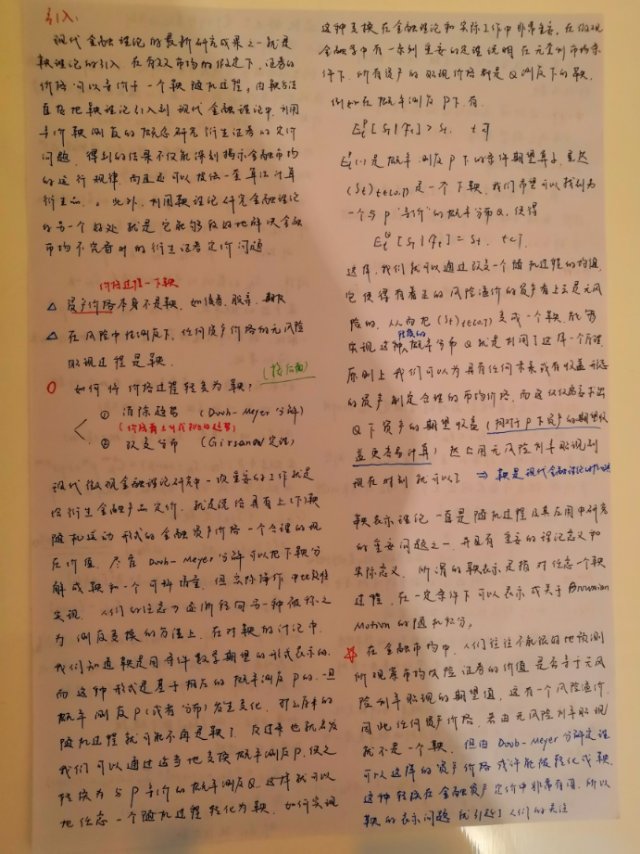 引入:
现代金融理论的最新研究成果之一就是
鞅理论的引入。在有效市场的假定下,证券的
价格可以等价于一个鞅随机过程。由鞅方法
直接把鞅理论引入到现代金融理论中,利用
等价鞅测度的概念研究衍生证券的定价
问题,得到的结果不仅能深刻揭示金融市场
的运行规律,而且还可以提供一套算法计算
衍生品。此外,利用鞅理论研究金融理论
的另一个好处就是它能够较好地解决金融
市场不完备时的衍生证券定价问题.
价格过程→下鞅
△ 资产价格本身不是鞅,如债券,股票,期权
△ 在风险中性测度下,任何资产价格的无风险
贴现过程是鞅.
○ 如何将价格过程转变为鞅?
(接后面)
① 消除趋势 (Doob-Meyer分解)
② 改变分布 (Girsanov定理)
现代微观金融理论研究中一项重要的工作就是
给衍生金融产品定价,就是说给具有上(下)鞅
随机运动形式的金融资产价格一个合理的现
在价值。尽管 Doob-Meyer分解可以把下鞅分
解成鞅和一个可料增量,但实际操作中
实现。人们的注意力逐渐转向另一种被称之
为测度变换的方法上。在对鞅的讨论中,
我们知道鞅是用条件数学期望的形式表示的.
而这种形式是基于相应的概率测度P的.一旦
概率测度P(或者分布)发生变化,那么原来的
随机过程就可能不再是鞅了。反过来也就启发
我们可以通过适当地变换概率测度P,使之
转换为与P等价的概率测度Q.这样就可以
把任意一个随机过程转化为鞅。如何实现
这种变换在金融理论和实际工作中非常重要。在微观
金融学中有一条到重要的定理说明在无套利市场条
件下,所有资产的贴现价格都是Q测度下的鞅.
例如在概率测度P下,有.
是概率测度P下的条件期望算子,显然
(St)t∈(0,T)是一个下鞅,我们希望可以找到另
一个与P"等价"的概率分布Q,使得
这样,我们就可以通过改变一个随机过程的均值,
它使得有着正的风险溢价的资产看上去是无风
险的,从而把(St)t∈(0,T)变成一个鞅.能够
实现这种转换的概率分布Q就是利用了这样一个原理.
原则上我们可以为具有任何未来或有收益形态
的资产制定合理的市场价格,而这仅仅需求出
Q下资产的期望收益(相对于P下资产的期望收
益更容易计算)然后用无风险利率贴现到
现在时刻就可以了 ⇒ 鞅是现代金融理论的
鞅表示理论一直是随机过程及其应用中研究
的重要问题之一.并且有重要的理论意义和
实际意义。所谓的鞅表示是指对任意一个鞅
过程,在一定条件下可以表示成关于Brownian
Motion的随机积分。
☆ 在金融市场中,人们往往不能很好地预测
所观察市场风险证券的价值是否等于无风
险利率贴现的期望值,这有一个风险溢价.
因此任何资产价格,若由无风险利率贴现
就不是一个鞅.但由 Doob-Meyer分解定理
可以这样的资产价格或许能被转化成鞅.
这种转换在金融资产定价中非常有用,所以
鞅的表示问题就引起了人们的关注